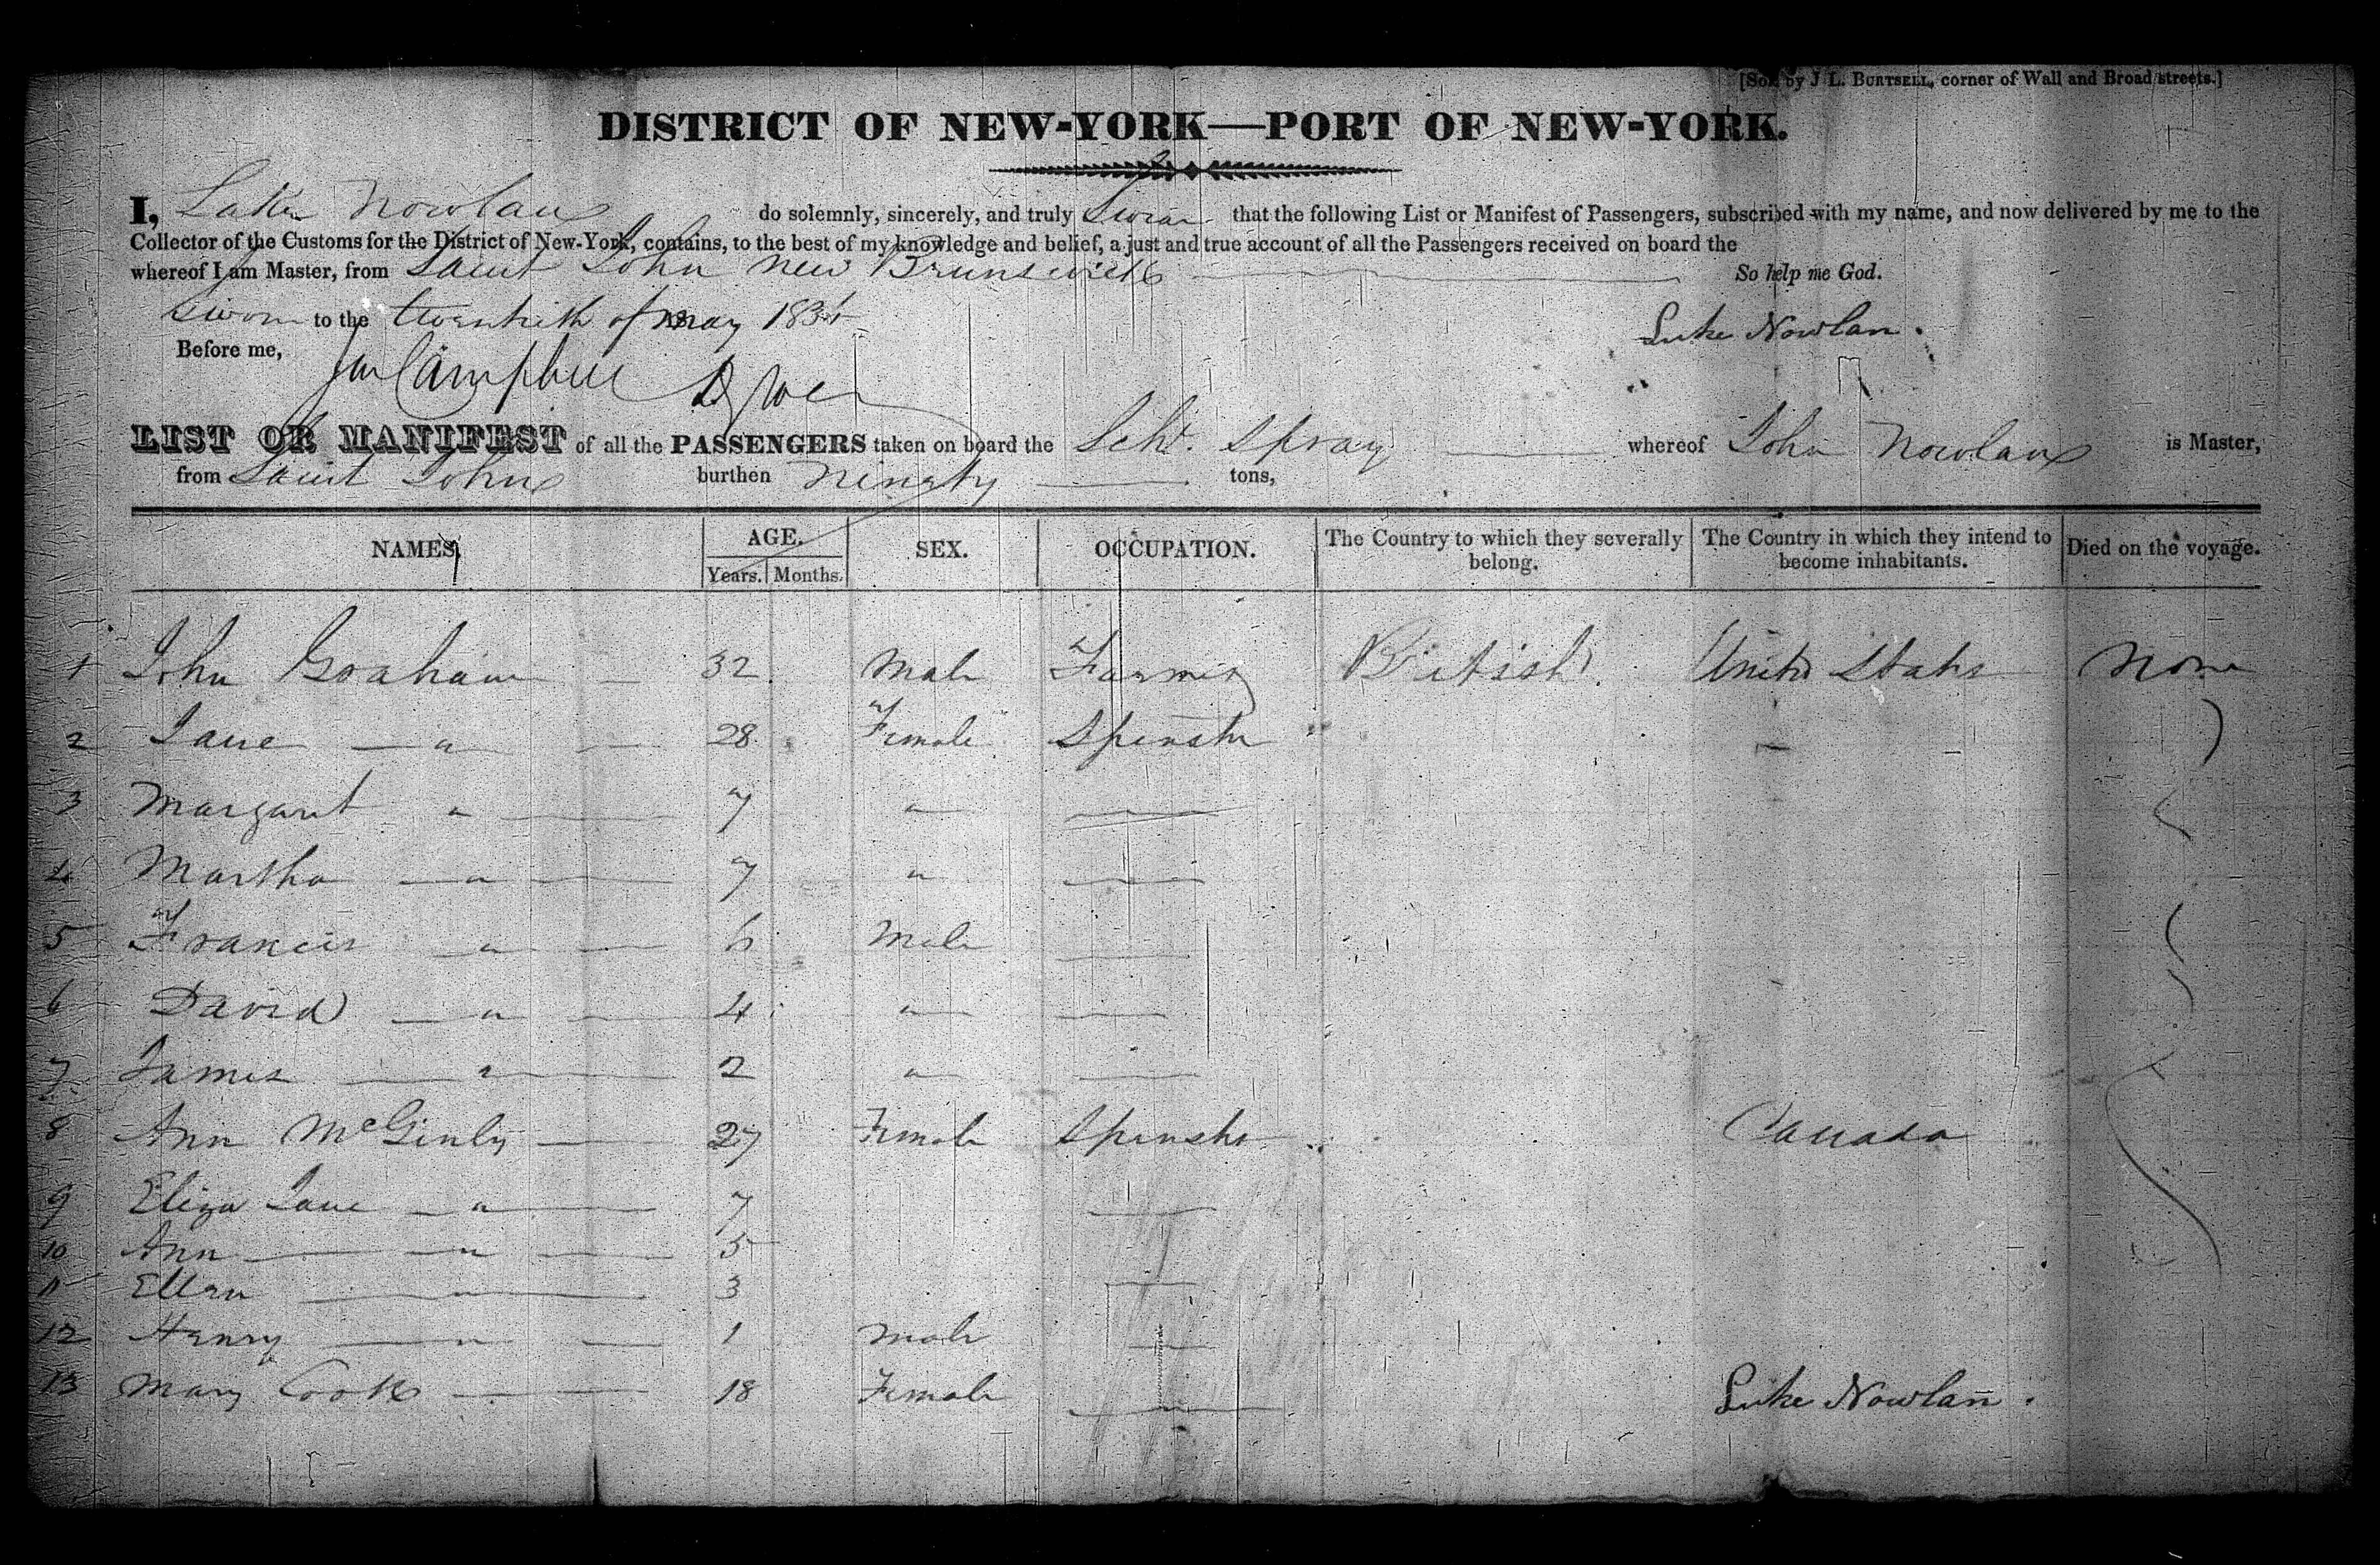 [Sold by J. L. BURTSELL, corner of Wall and Broad streets.]
DISTRICT OF NEW-YORK—PORT OF NEW-YORK.
I, Luke Nowlan do solemnly, sincerely, and truly Swear that the following List or Manifest of Passengers, subscribed with my name, and now delivered by me to the
Collector of the Customs for the District of New-York, contains, to the best of my knowledge and belief, a just and true account of all the Passengers received on board the
whereof I am Master, from Saint John New Brunswick So help me God.
Sworn to the twentieth of may Luke Nowlan.
Before me, Campbell
LIST OR MANIFEST of all the PASSENGERS taken on board the Schr. Spray whereof John Nowlan is Master,
from Saint John burthen Ninety tons,
NAMES, AGE. SEX. OCCUPATION. The Country to which they severally belong. The Country in which they intend to become inhabitants. Died on the voyage.
Years. Months.
1 John Graham — 32 Male Farmer British United States None
2 Jane — " — 28 Female Spinster "
3 Margaret " — 7 " —
4 Martha — " — 7 " —
5 Francis — " — 6 Male —
6 David — " — 4 " —
7 James — " — 2 " —
8 Ann McGinly — 27 Female Spinster " Canada
9 Eliza Jane — " — 7 —
10 Ann — " — 5
11 Ellen — " — 3 —
12 Henry — " — 1 Male —
13 Mary Cook — 18 Female — Luke Nowlan.